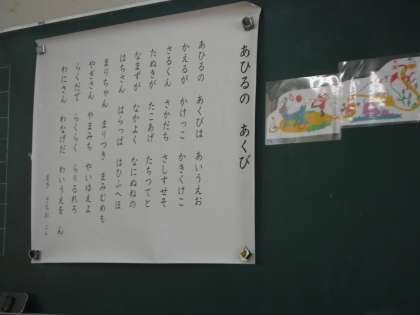 あひるの　あくび
あひるの　あくびは　あいうえお
かえるが　かけっこ　かきくけこ
さるくん　さかだち　さしすせそ
たぬきが　たこあげ　たちつてと
なまずが　なかよく　なにぬねの
はちさん　はらっぱ　はひふへほ
まりちゃん　まりつき　まみむめも
やぎさん　やまみち　やいゆえよ
らくだで　らくらく　らりるれろ
わにさん　わなげだ　わいうえを　ん